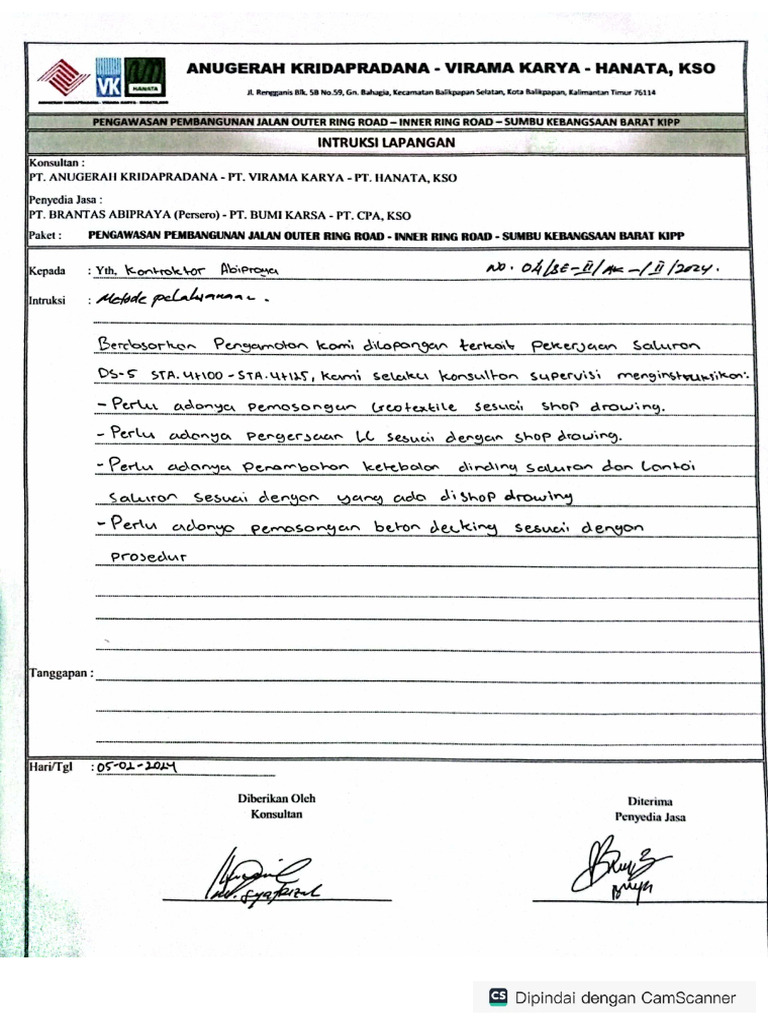 VK
HANATA
ANUGERAH KRIDAPRADANA - VIRAMA KARYA - HANATA, KSO
Jl. Rengganis Blk. 5B No.59, Gn. Bahagia, Kecamatan Balikpapan Selatan, Kota Balikpapan, Kalimantan Timur 76114
PENGAWASAN PEMBANGUNAN JALAN OUTER RING ROAD – INNER RING ROAD – SUMBU KEBANGSAAN BARAT KIPP
INTRUKSI LAPANGAN
Konsultan :
PT. ANUGERAH KRIDAPRADANA - PT. VIRAMA KARYA - PT. HANATA, KSO
Penyedia Jasa :
PT. BRANTAS ABIPRAYA (Persero) - PT. BUMI KARSA - PT. CPA, KSO
Paket : PENGAWASAN PEMBANGUNAN JALAN OUTER RING ROAD - INNER RING ROAD - SUMBU KEBANGSAAN BARAT KIPP
Kepada : Yth, Kontraktor Abipraya NO. 04/SE-II/AK-/II/2024.
Intruksi : Metode pelaksanaan.
Berdasarkan Pengamatan kami dilapangan terkait pekerjaan Saluran
DS-5 STA.4+100 - STA.4+125, kami selaku konsultan supervisi menginstruksikan:
- Perlu adanya pemasangan Geotextile sesuai shop drawing.
- Perlu adanya pengerjaan LC sesuai dengan shop drawing.
- Perlu adanya Penambahan ketebalan dinding saluran dan Lantai
saluran sesuai dengan yang ada dishop drawing
- Perlu adanya pemasangan beton decking sesuai dengan
prosedur
Tanggapan :
Hari/Tgl : 05-02-2024
Diberikan Oleh
Konsultan
Diterima
Penyedia Jasa
CS Dipindai dengan CamScanner